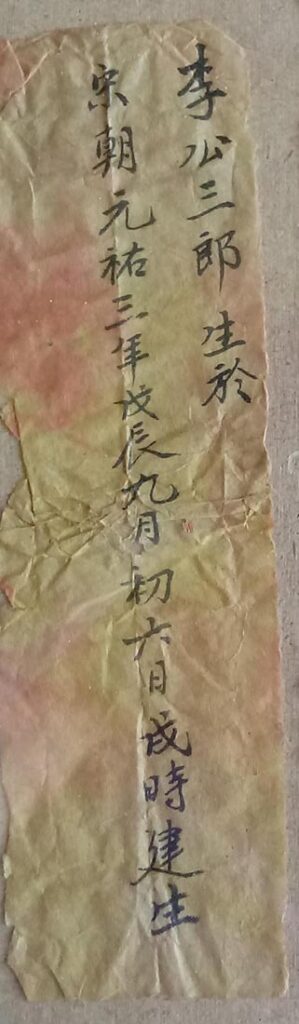 李公三郎生於
宋朝元祐三年戊辰九月初六日戌時建生